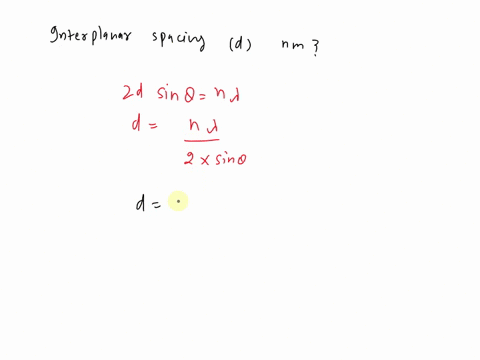 Interplanar spacing (d) nm?
2d sinθ = nλ
d = nλ
2 × sinθ
d =